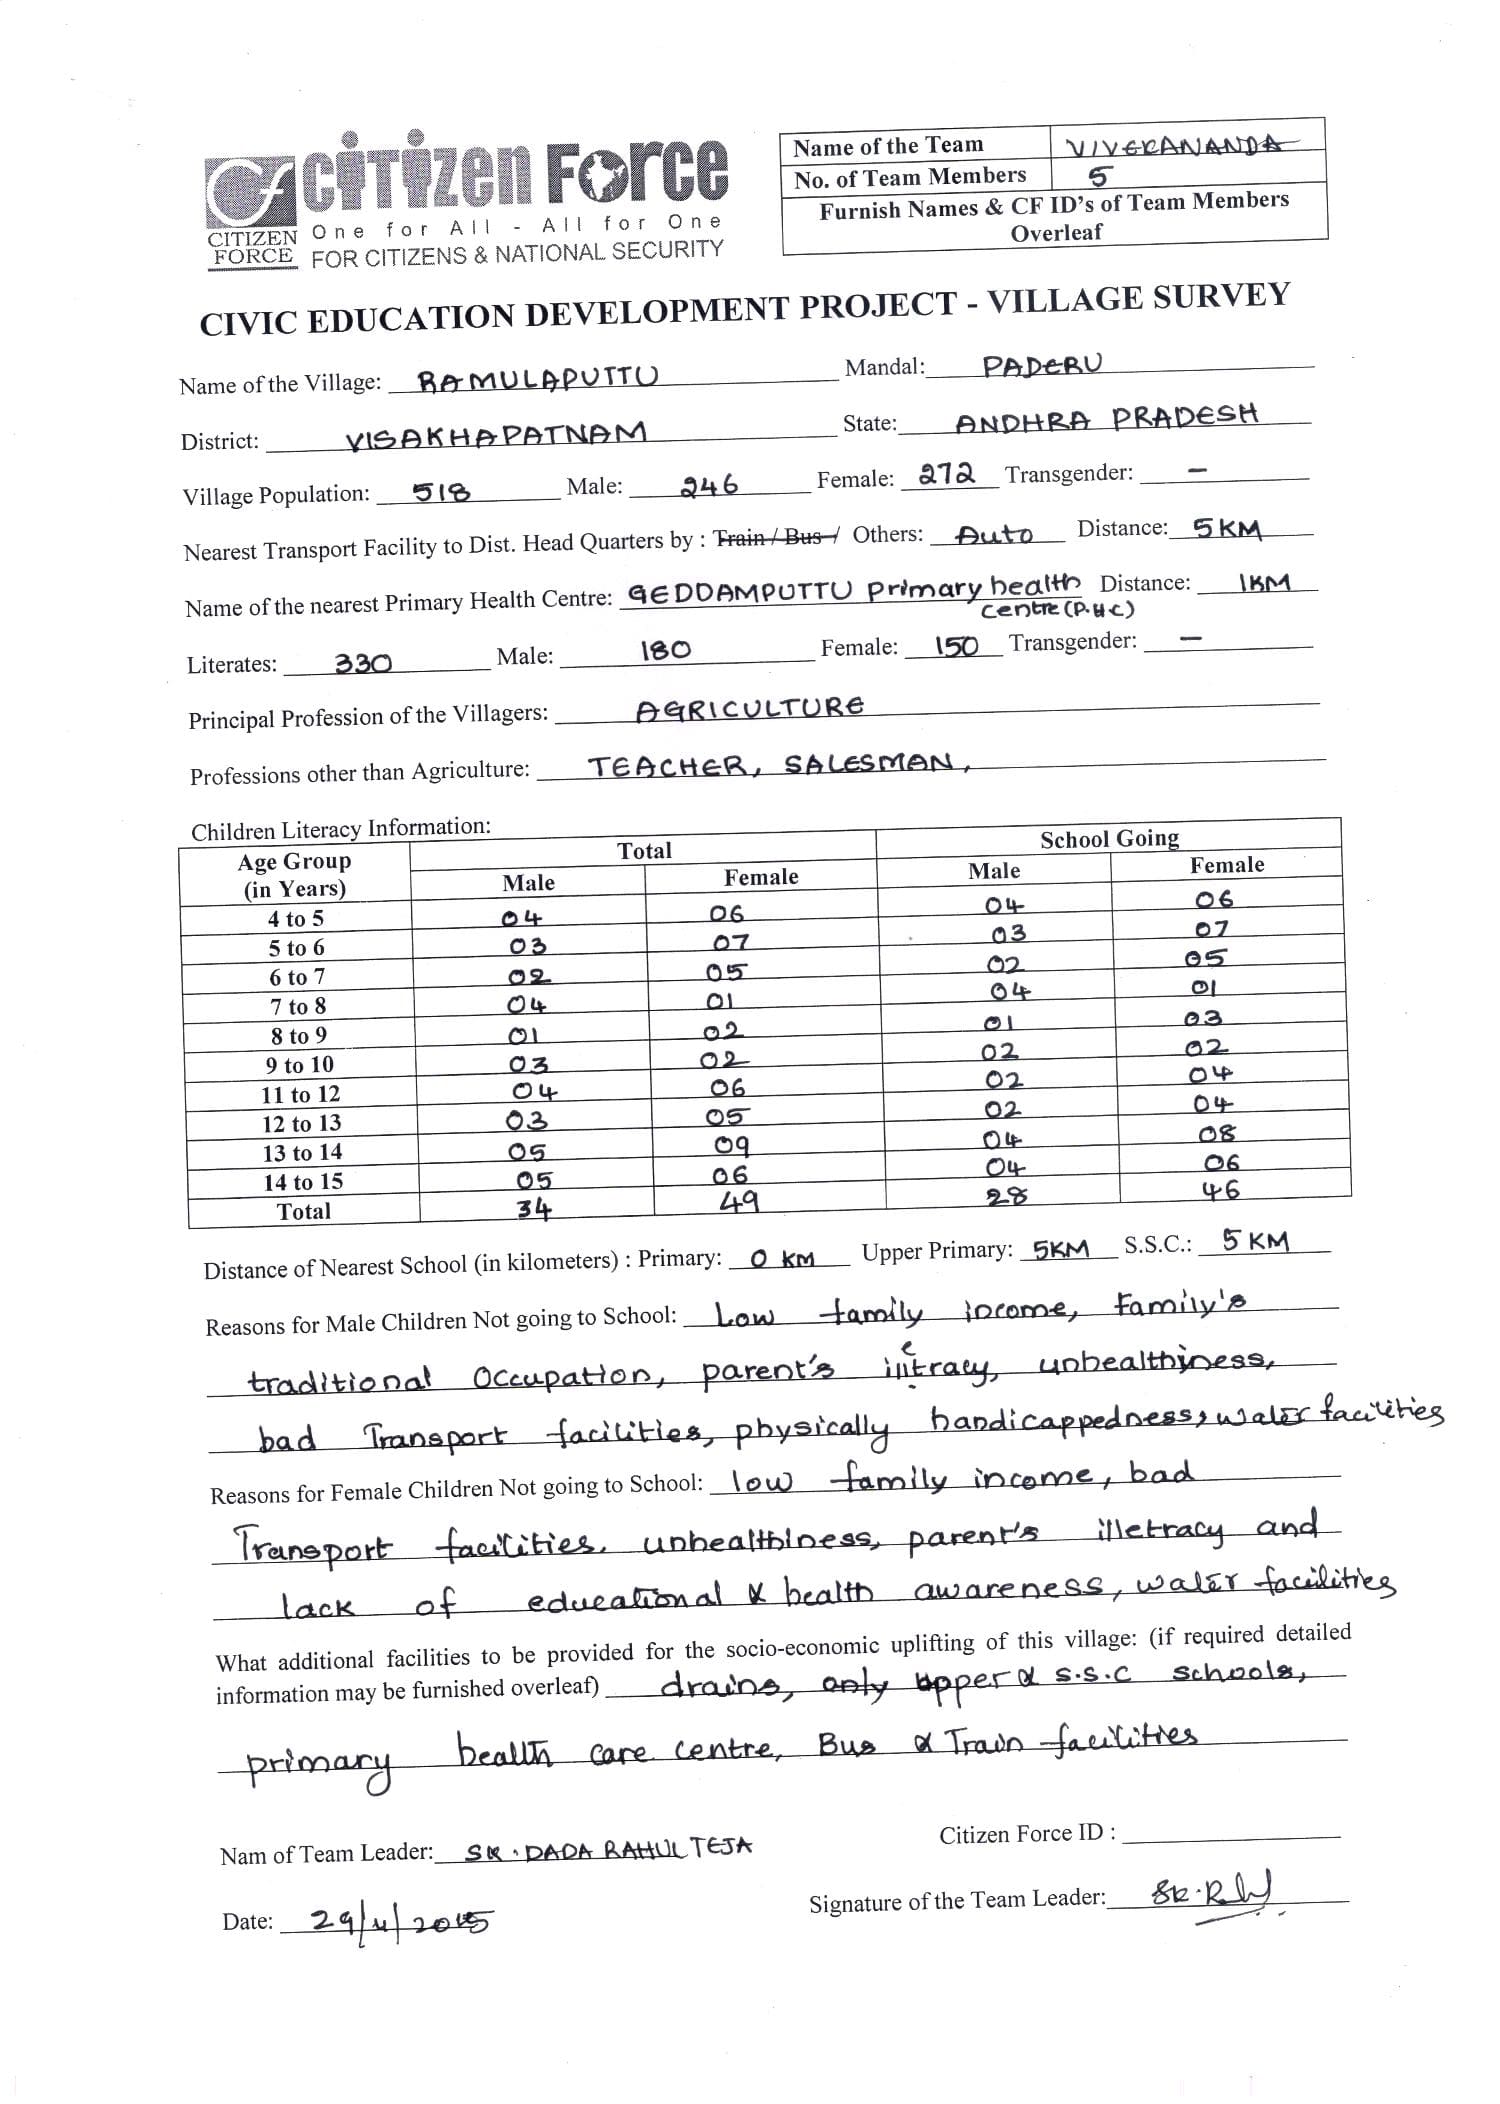 CITIZEN FORCE
One for All - All for One
FOR CITIZENS & NATIONAL SECURITY
CITIZEN
FORCE
Name of the Team VIVEKANANDA
No. of Team Members 5
Furnish Names & CF ID's of Team Members
Overleaf
CIVIC EDUCATION DEVELOPMENT PROJECT - VILLAGE SURVEY
Name of the Village: RAMULAPUTTU Mandal: PADERU
District: VISAKHAPATNAM State: ANDHRA PRADESH
Village Population: 518 Male: 246 Female: 272 Transgender: –
Nearest Transport Facility to Dist. Head Quarters by : Train / Bus / Others: Auto Distance: 5KM
Name of the nearest Primary Health Centre: GEDDAMPUTTU primary health Distance: 1KM
centre (P.H.C)
Literates: 330 Male: 180 Female: 150 Transgender: –
Principal Profession of the Villagers: AGRICULTURE
Professions other than Agriculture: TEACHER, SALESMAN,
Children Literacy Information:
Age Group (in Years) Total School Going
Male Female Male Female
4 to 5 04 06 04 06
5 to 6 03 07 03 07
6 to 7 02 05 02 05
7 to 8 04 01 04 01
8 to 9 01 02 01 03
9 to 10 03 02 02 02
11 to 12 04 06 02 04
12 to 13 03 05 02 04
13 to 14 05 09 04 08
14 to 15 05 06 04 06
Total 34 49 28 46
Distance of Nearest School (in kilometers) : Primary: 0 KM Upper Primary: 5KM S.S.C.: 5 KM
Reasons for Male Children Not going to School: Low family income, family's
traditional occupation, parent's unhealthiness,
bad Transport facilities, physically handicappedness, water facilities
Reasons for Female Children Not going to School: low family income, bad
Transport facilities, unhealthiness, parent's illetracy and
lack of educational & health awareness, water facilities
What additional facilities to be provided for the socio-economic uplifting of this village: (if required detailed
information may be furnished overleaf) drains, only upper & s.s.c schools,
primary health care centre, Bus & Train facilities
Nam of Team Leader: SK. DADA RAHUL TEJA Citizen Force ID :
Date: 29/4/2015 Signature of the Team Leader: SK.